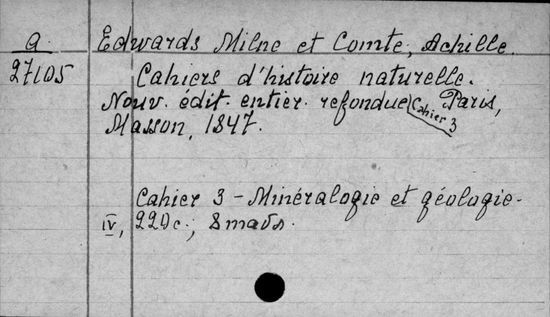 a Edwards Milne et Comte, Achille.
27105 Cahiers d'histoire naturelle.
Nouv. édit. entier. refondue Cahier 3 Paris,
Masson, 1847.
Cahier 3 - Minéralogie et géologie.
IV, 220c.,